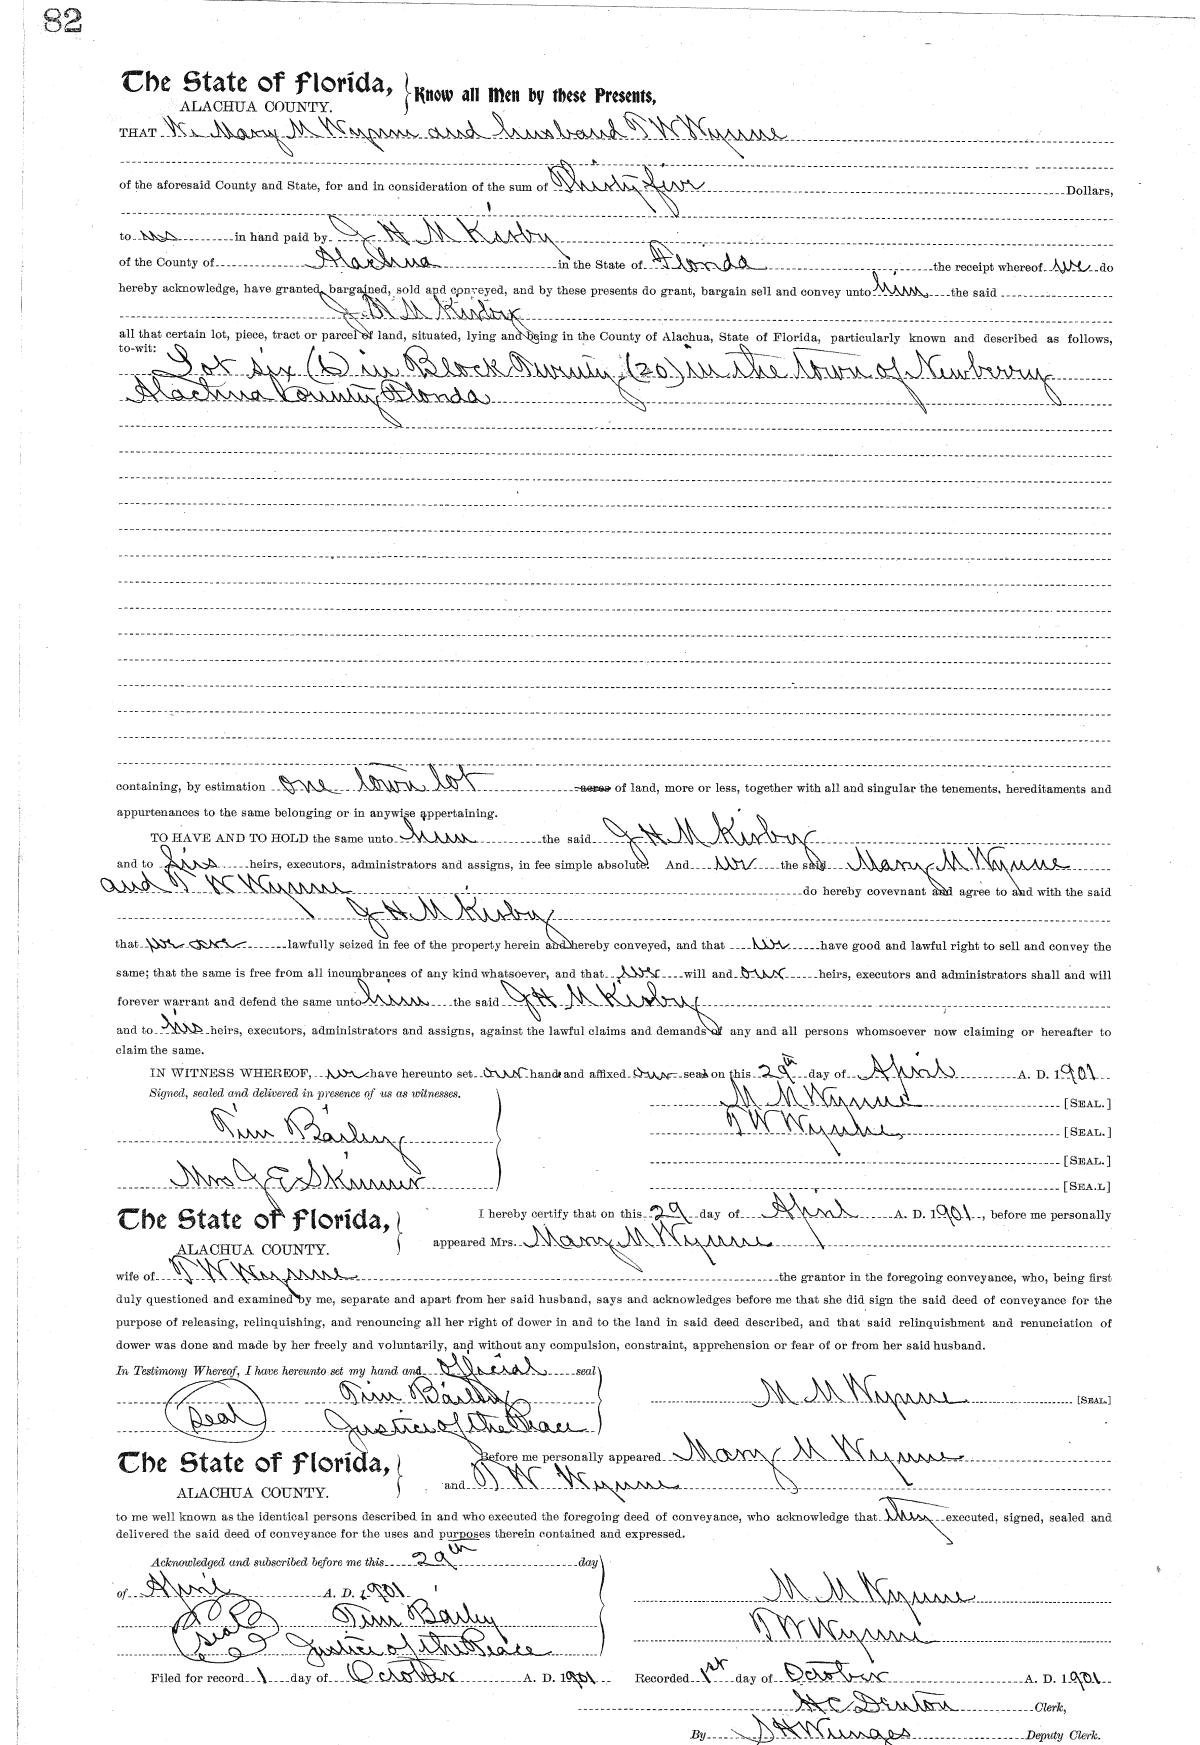 82
The State of Florida, Know all Men by these Presents,
ALACHUA COUNTY.
THAT We Mary M Wynne and husband T W Wynne
of the aforesaid County and State, for and in consideration of the sum of Thirty five Dollars,
to us in hand paid by J H M Kirby
of the County of Alachua in the State of Florida the receipt whereof we do
hereby acknowledge, have granted, bargained, sold and conveyed, and by these presents do grant, bargain sell and convey unto him the said
J H M Kirby
all that certain lot, piece, tract or parcel of land, situated, lying and being in the County of Alachua, State of Florida, particularly known and described as follows,
to-wit: Lot six (6) in Block Twenty (20) in the town of Newberry
Alachua County Florida
containing, by estimation one town lot acres of land, more or less, together with all and singular the tenements, hereditaments and
appurtenances to the same belonging or in anywise appertaining.
TO HAVE AND TO HOLD the same unto him the said J H M Kirby
and to his heirs, executors, administrators and assigns, in fee simple absolute. And we the said Mary M Wynne
and T W Wynne do hereby covevnant and agree to and with the said
J H M Kirby
that we are lawfully seized in fee of the property herein and hereby conveyed, and that we have good and lawful right to sell and convey the
same; that the same is free from all incumbrances of any kind whatsoever, and that we will and our heirs, executors and administrators shall and will
forever warrant and defend the same unto him the said J H M Kirby
and to his heirs, executors, administrators and assigns, against the lawful claims and demands of any and all persons whomsoever now claiming or hereafter to
claim the same.
IN WITNESS WHEREOF, we have hereunto set our hands and affixed our seals on this 29th day of April A. D. 1901
Signed, sealed and delivered in presence of us as witnesses. M M Wynne [SEAL.]
Tim Bailey T W Wynne [SEAL.]
[SEAL.]
Mrs J E Skinner [SEA.L]
The State of Florida, I hereby certify that on this 29 day of April A. D. 1901, before me personally
ALACHUA COUNTY. appeared Mrs. Mary M Wynne
wife of T W Wynne the grantor in the foregoing conveyance, who, being first
duly questioned and examined by me, separate and apart from her said husband, says and acknowledges before me that she did sign the said deed of conveyance for the
purpose of releasing, relinquishing, and renouncing all her right of dower in and to the land in said deed described, and that said relinquishment and renunciation of
dower was done and made by her freely and voluntarily, and without any compulsion, constraint, apprehension or fear of or from her said husband.
In Testimony Whereof, I have hereunto set my hand and official seal
Seal Tim Bailey M M Wynne [SEAL.]
Justice of the Peace
The State of Florida, Before me personally appeared Mary M Wynne
ALACHUA COUNTY. and T W Wynne
to me well known as the identical persons described in and who executed the foregoing deed of conveyance, who acknowledge that they executed, signed, sealed and
delivered the said deed of conveyance for the uses and purposes therein contained and expressed.
Acknowledged and subscribed before me this 29th day
of April A. D. 1901 M M Wynne
Seal Tim Bailey T W Wynne
Justice of the Peace
Filed for record 1 day of October A. D. 1901 Recorded 1st day of October A. D. 1901
H C Denton Clerk,
By S H Wienges Deputy Clerk.